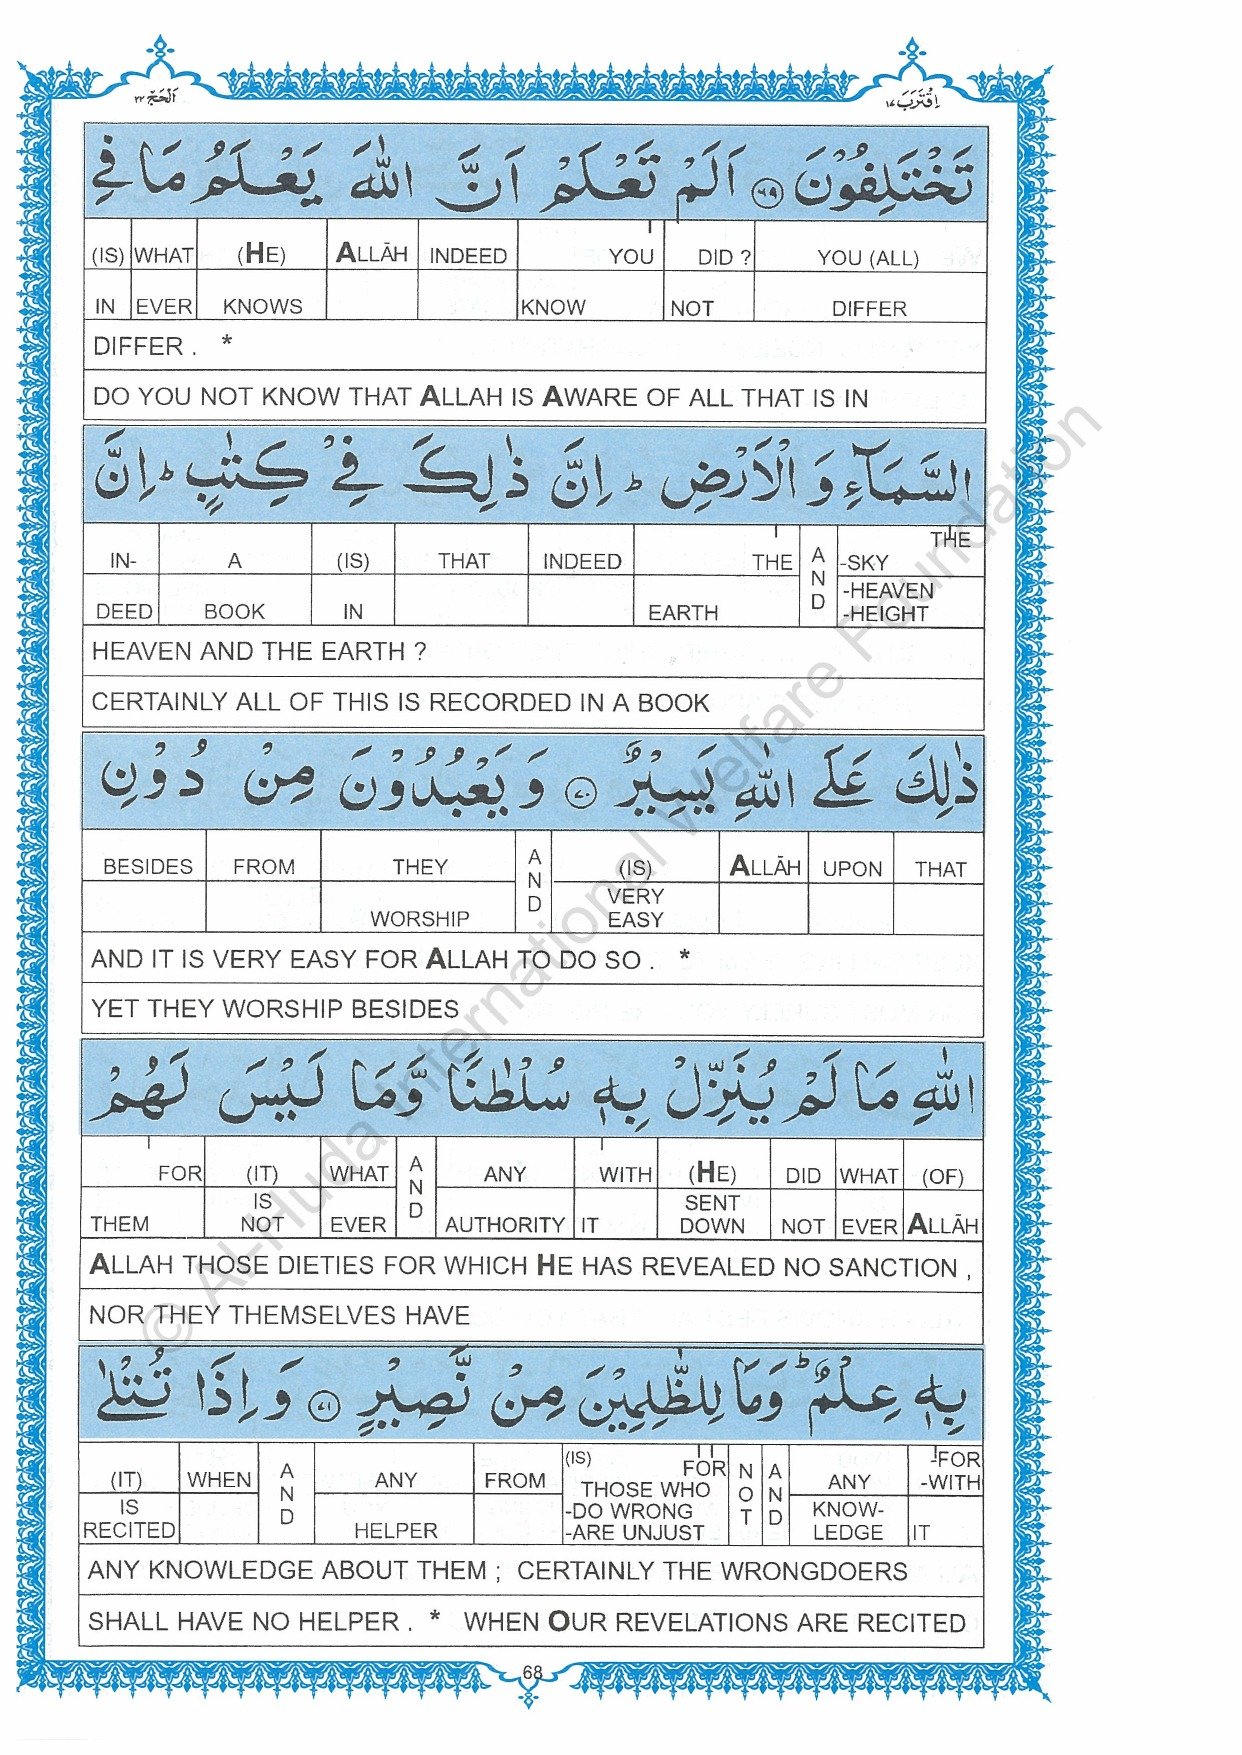 اَلْحَجّ ٢٢
اِقْتَرَبَ ١٧
تَخْتَلِفُوْنَ ٦٩ اَلَمْ تَعْلَمْ اَنَّ اللّٰهَ يَعْلَمُ مَا فِي
(IS) WHAT (HE) ALLĀH INDEED YOU DID ? YOU (ALL)
IN EVER KNOWS KNOW NOT DIFFER
DIFFER . *
DO YOU NOT KNOW THAT ALLAH IS AWARE OF ALL THAT IS IN
السَّمَآءِ وَ الْاَرْضِ ؕ اِنَّ ذٰلِكَ فِيْ كِتٰبٍ ؕ اِنَّ
IN- A (IS) THAT INDEED THE AND -SKY THE
DEED BOOK IN EARTH -HEAVEN
-HEIGHT
HEAVEN AND THE EARTH ?
CERTAINLY ALL OF THIS IS RECORDED IN A BOOK
ذٰلِكَ عَلَى اللّٰهِ يَسِيْرٌ ٧٠ وَ يَعْبُدُوْنَ مِنْ دُوْنِ
BESIDES FROM THEY AND (IS) ALLĀH UPON THAT
WORSHIP VERY
EASY
AND IT IS VERY EASY FOR ALLAH TO DO SO . *
YET THEY WORSHIP BESIDES
اللّٰهِ مَا لَمْ يُنَزِّلْ بِهٖ سُلْطٰنًا وَّمَا لَيْسَ لَهُمْ
FOR (IT) WHAT AND ANY WITH (HE) DID WHAT (OF)
THEM IS NOT EVER AUTHORITY IT SENT DOWN NOT EVER ALLĀH
ALLAH THOSE DIETIES FOR WHICH HE HAS REVEALED NO SANCTION ,
NOR THEY THEMSELVES HAVE
بِهٖ عِلْمٌ ؕ وَمَا لِلظّٰلِمِيْنَ مِنْ نَّصِيْرٍ ٧١ وَ اِذَا تُتْلٰى
(IT) WHEN AND ANY FROM (IS) FOR NOT AND ANY -FOR
THOSE WHO -WITH
IS RECITED HELPER -DO WRONG KNOW- IT
-ARE UNJUST LEDGE
ANY KNOWLEDGE ABOUT THEM ; CERTAINLY THE WRONGDOERS
SHALL HAVE NO HELPER . * WHEN OUR REVELATIONS ARE RECITED
68
© Al-Huda International Welfare Foundation